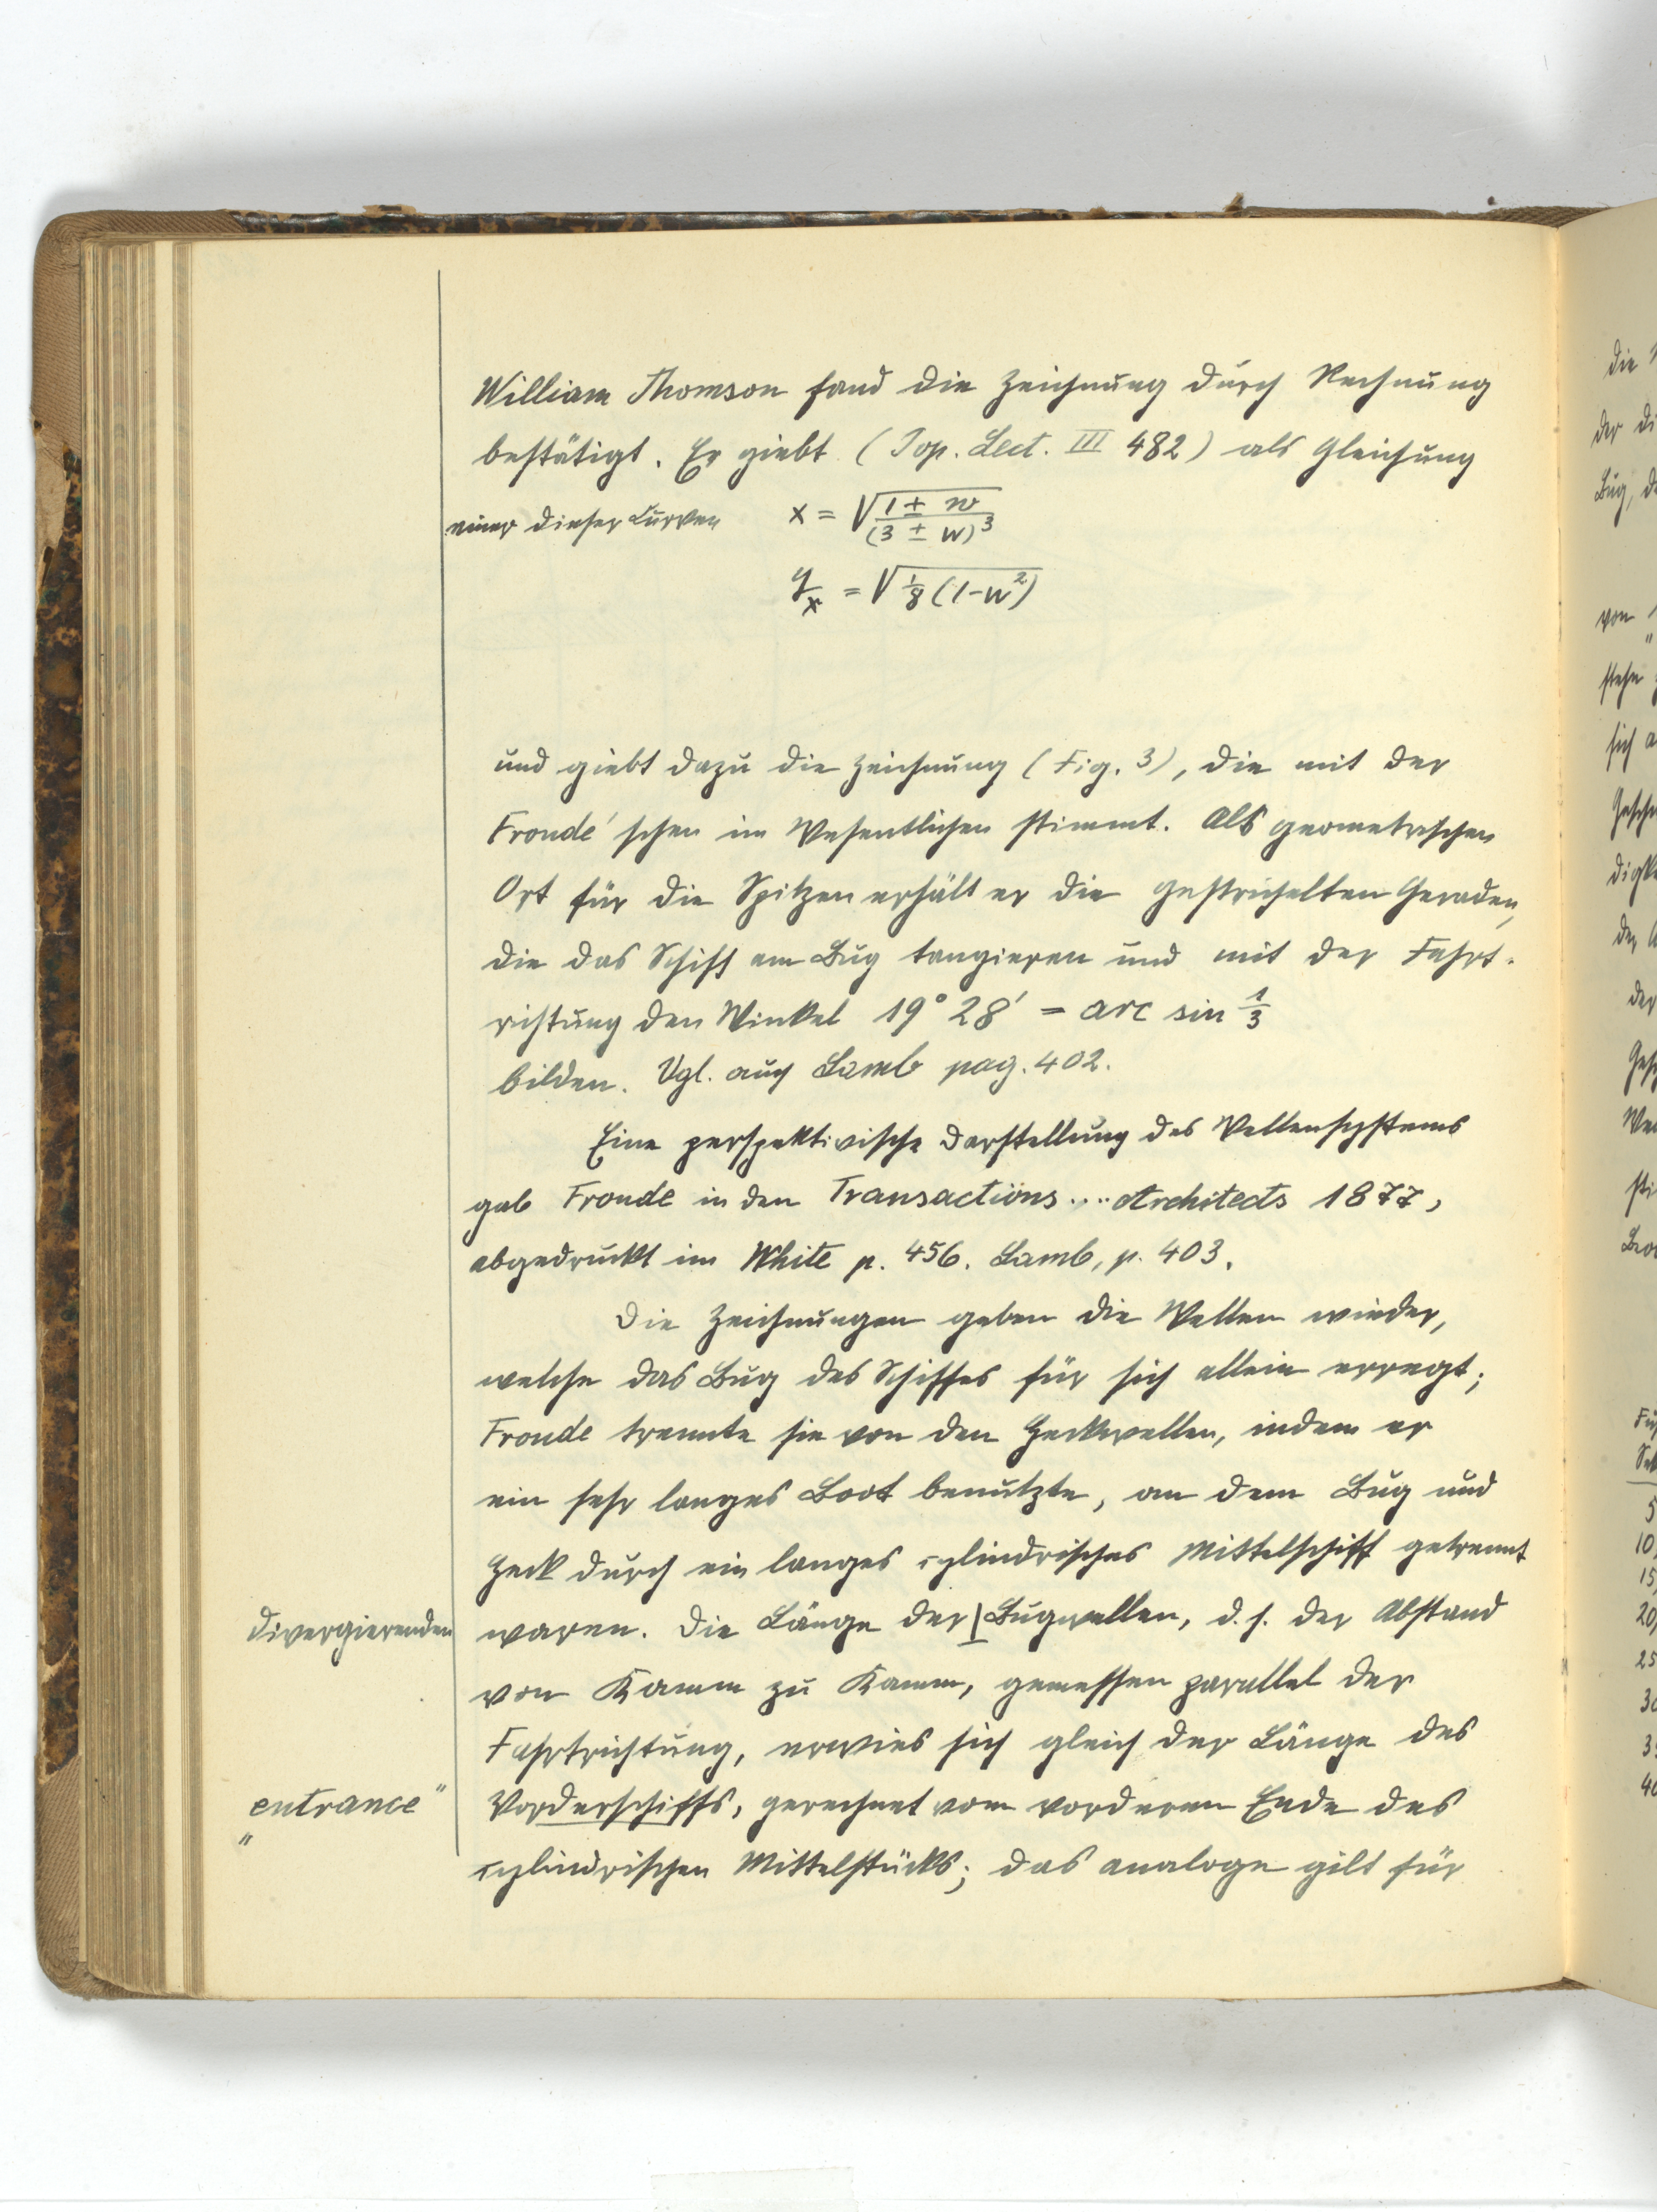 William Thomson fand die Zeichnung durch Rechnung
bestätigt. Er giebt (Pop. Lect. III 482) als Gleichung
einer dieser Curven x = √((1 ± w)/(3 ± w)³)
y/x = √(⅛(1-w²))
und giebt dazu die Zeichnung (Fig. 3), die mit der
Froude'schen im Wesentlichen stimmt. Als geometrischen
Ort für die Spitzen erhält er die gestrichelten Geraden,
die das Schiff am Bug tangieren und mit der Fahrt-
richtung den Winkel 19° 28' = arc sin 1/3
bilden. Vgl. auch Lamb pag. 402.
Eine perspektivische Darstellung des Wellensystems
gab Froude in den Transactions .... Architects 1877,
abgedruckt im White p. 456. Lamb, p. 403.
Die Zeichnungen geben die Wellen wieder,
welche das Bug des Schiffes für sich allein erregt;
Froude trennte sie von den Heckwellen, indem er
ein sehr langes Boot benutzte, an dem Bug und
Heck durch ein langes cylindrisches Mittelschiff getrennt
divergierenden
waren. Die Länge der | Bugwellen, d. h. der Abstand
von Kamm zu Kamm, gemessen parallel der
Fahrtrichtung, erwies sich gleich der Länge des
„entrance"
Vorderschiffs, gerechnet vom vorderen Ende des
cylindrischen Mittelstücks; das analoge gilt für